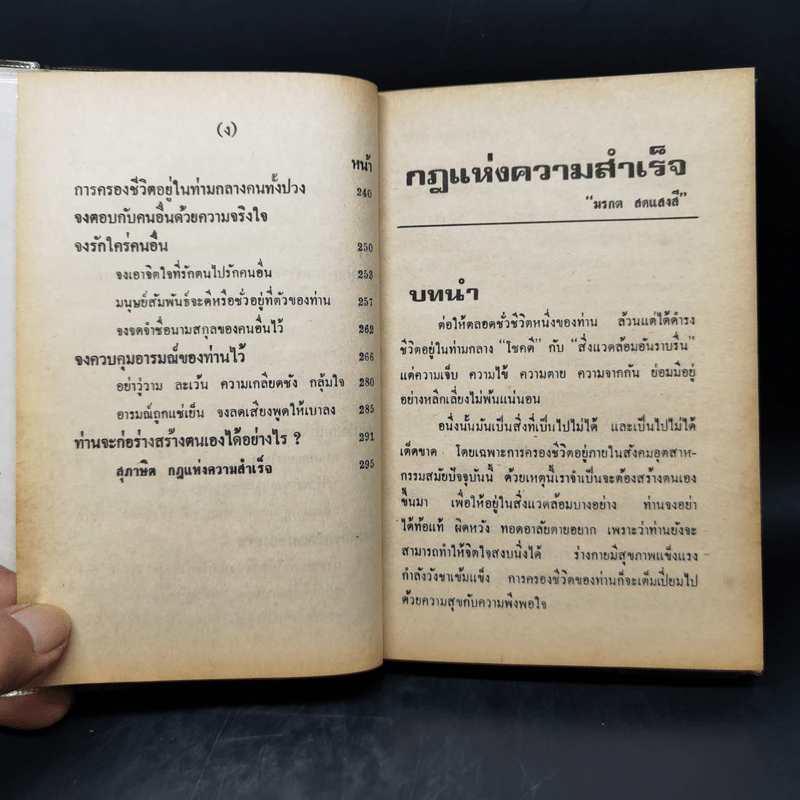 (ง)
หน้า
การครองชีวิตอยู่ในท่ามกลางคนทั้งปวง 240
จงตอบกับคนอื่นด้วยความจริงใจ
จงรักใคร่คนอื่น 250
จงเอาจิตใจที่รักตนไปรักคนอื่น 253
มนุษย์สัมพันธ์จะดีหรือชั่วอยู่ที่ตัวของท่าน 257
จงจดจำชื่อนามสกุลของคนอื่นไว้ 262
จงควบคุมอารมณ์ของท่านไว้ 266
อย่าวู่วาม ละเว้น ความเกลียดชัง กลุ้มใจ 280
อารมณ์ถูกแช่เย็น จงลดเสียงพูดให้เบาลง 285
ท่านจะก่อร่างสร้างตนเองได้อย่างไร ? 291
สุภาษิต กฎแห่งความสำเร็จ 295
กฎแห่งความสำเร็จ
“มรกต สดแสงสี”
บทนำ
ต่อให้ตลอดชั่วชีวิตหนึ่งของท่าน ล้วนแต่ได้ดำรง
ชีวิตอยู่ในท่ามกลาง “โชคดี” กับ “สิ่งแวดล้อมอันราบรื่น”
แต่ความเจ็บ ความไข้ ความตาย ความจากกัน ย่อมมีอยู่
อย่างหลีกเลี่ยงไม่พ้นแน่นอน
อนึ่งนั้นมันเป็นสิ่งที่เป็นไปไม่ได้ และเป็นไปไม่ได้
เด็ดขาด โดยเฉพาะการครองชีวิตอยู่ภายในสังคมอุตสาห-
กรรมสมัยปัจจุบันนี้ ด้วยเหตุนี้เราจำเป็นจะต้องสร้างตนเอง
ขึ้นมา เพื่อให้อยู่ในสิ่งแวดล้อมบางอย่าง ท่านจงอย่า
ได้ท้อแท้ ผิดหวัง ทอดอาลัยตายอยาก เพราะว่าท่านยังจะ
สามารถทำให้จิตใจสงบนิ่งได้ ร่างกายมีสุขภาพแข็งแรง
กำลังวังชาเข้มแข็ง การครองชีวิตของท่านก็จะเต็มเปี่ยมไป
ด้วยความสุขกับความพึงพอใจ